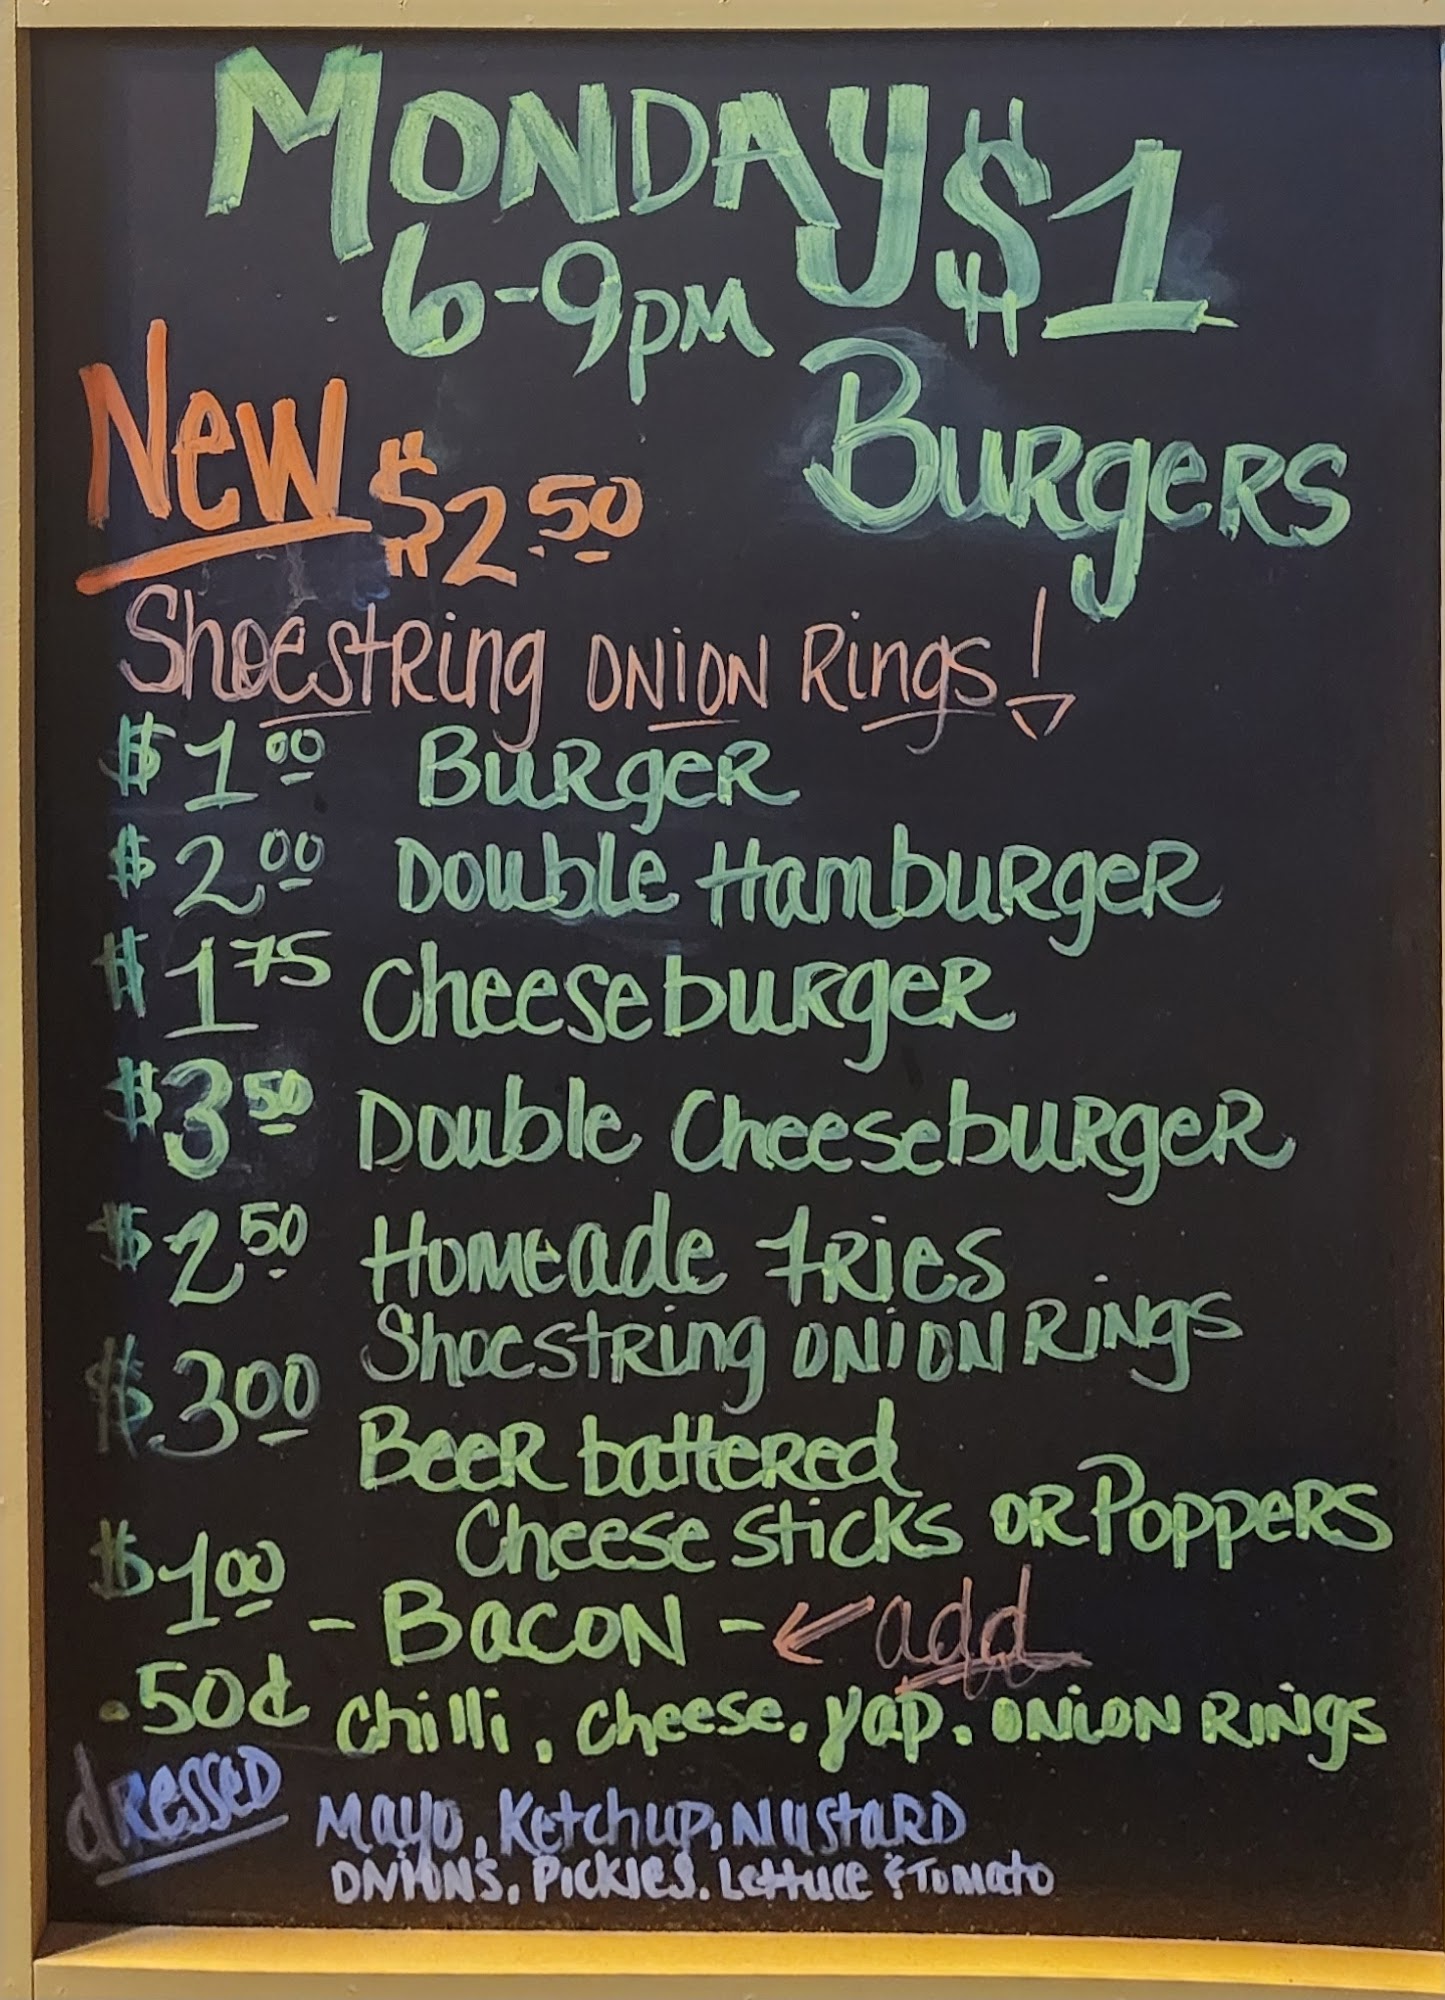 MONDAY $1
6-9PM
BURGERS
New $2.50
Shoestring ONION Rings!
$1.00 BURGER
$2.00 Double Hamburger
$1.75 Cheeseburger
$3.50 Double Cheeseburger
$2.50 Homeade Fries
Shoestring ONION RINgs
$3.00 Beer battered
Cheese sticks OR Poppers
$1.00 - BACON - ← add
.50¢ Chilli, Cheese. yap. ONION RINgs
dressed Mayo, Ketchup, Mustard
ONIONS, Pickles. Lettuce & Tomato